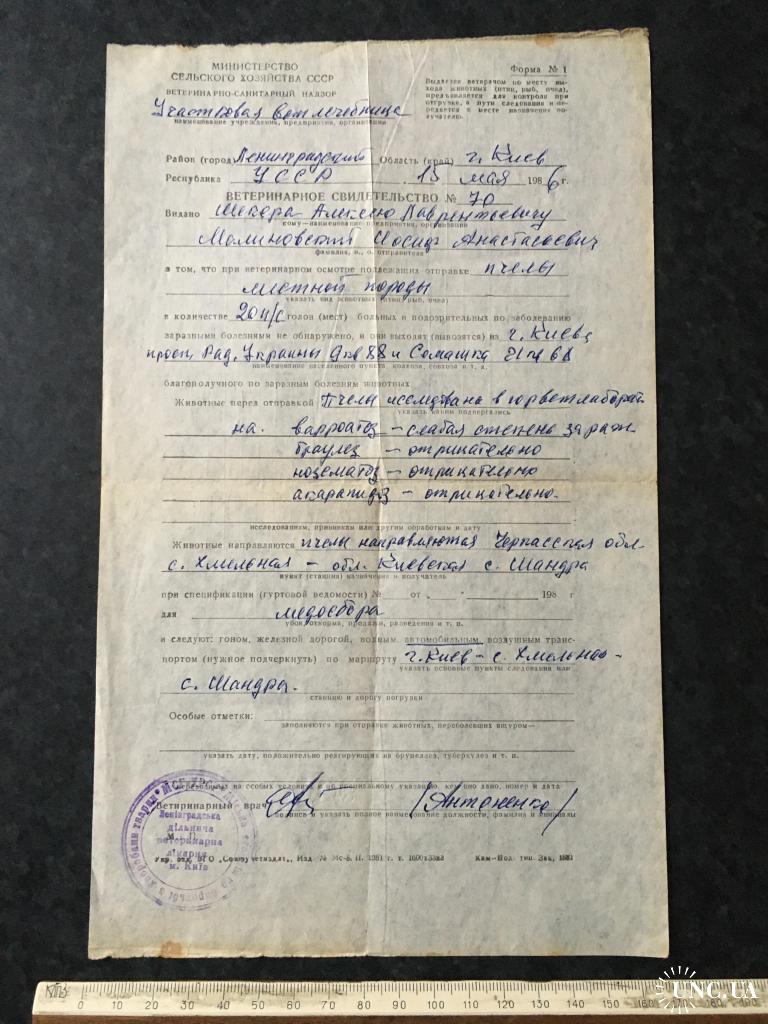 МИНИСТЕРСТВО
СЕЛЬСКОГО ХОЗЯЙСТВА СССР
ВЕТЕРИНАРНО-САНИТАРНЫЙ НАДЗОР
Участковая ветлечебница
наименование учреждения, предприятия, организации
Форма № 1
Выдается ветврачом по месту вывоза животных (птиц, рыб, пчел), предъявляется для контроля при отгрузке, в пути следования и передается в месте назначения получателю.
Район (город) Ленинградский Область (край) г. Киев
Республика УССР 15 мая 1986 г.
ВЕТЕРИНАРНОЕ СВИДЕТЕЛЬСТВО № 70
Выдано Алексею Лаврентьевичу
кому—наименование предприятия, организации
Малиновский Иосиф Анастасович
фамилия, и., о. отправителя
в том, что при ветеринарном осмотре подлежащих отправке пчелы
местной породы
указать вид животных (птиц, рыб, пчел)
в количестве 20 п/с голов (мест) больных и подозрительных по заболеванию
заразными болезнями не обнаружено, и они выходят (вывозятся) из г. Киева
просп. Рад. Украины 9 кв 88 и
наименование населенного пункта, колхоза, совхоза и т. д.
благополучного по заразным болезням животных
Животные перед отправкой Пчелы исследована в
указать каким подвергались
на. варроатоз – слабая степень зараж
браулез – отрицательно
нозематоз – отрицательно
акарапидоз – отрицательно.
исследованиям, прививкам или другим обработкам и дату
Животные направляются пчелы направляются Черкасская обл
с. Хмельная – обл. Киевская с. Шандра
пункт (станция) назначения и получатель
при спецификации (гуртовой ведомости) № от „ “ 198 г
для медосбора
убоя, откорма, продажи, разведения и т. п.
и следуют: гоном, железной дорогой, водным автомобильным воздушным транс-
портом (нужное подчеркнуть) по маршруту г. Киев – с. Хмельная –
указать основные пункты следования или
с. Шандра.
станцию и дорогу погрузки
Особые отметки:
заполняются при отправке животных, переболевших ящуром—
указать дату, положительно реагирующих на бруцеллез, туберкулез и т. п.
перевозимых на особых условиях и по специальному указанию, кем оно дано, номер и дата
Ветеринарный врач /Антоненко/
подпись и указать полное наименование должности, фамилия и инициалы
М. П.
Ленінградська
дільнича
ветеринарна
лікарня
м. Київа
КПЗ 0 10 20 30 40 50 60 70 80 90 100 110 120 130 140 150 160 170 180 190
UNC.UA